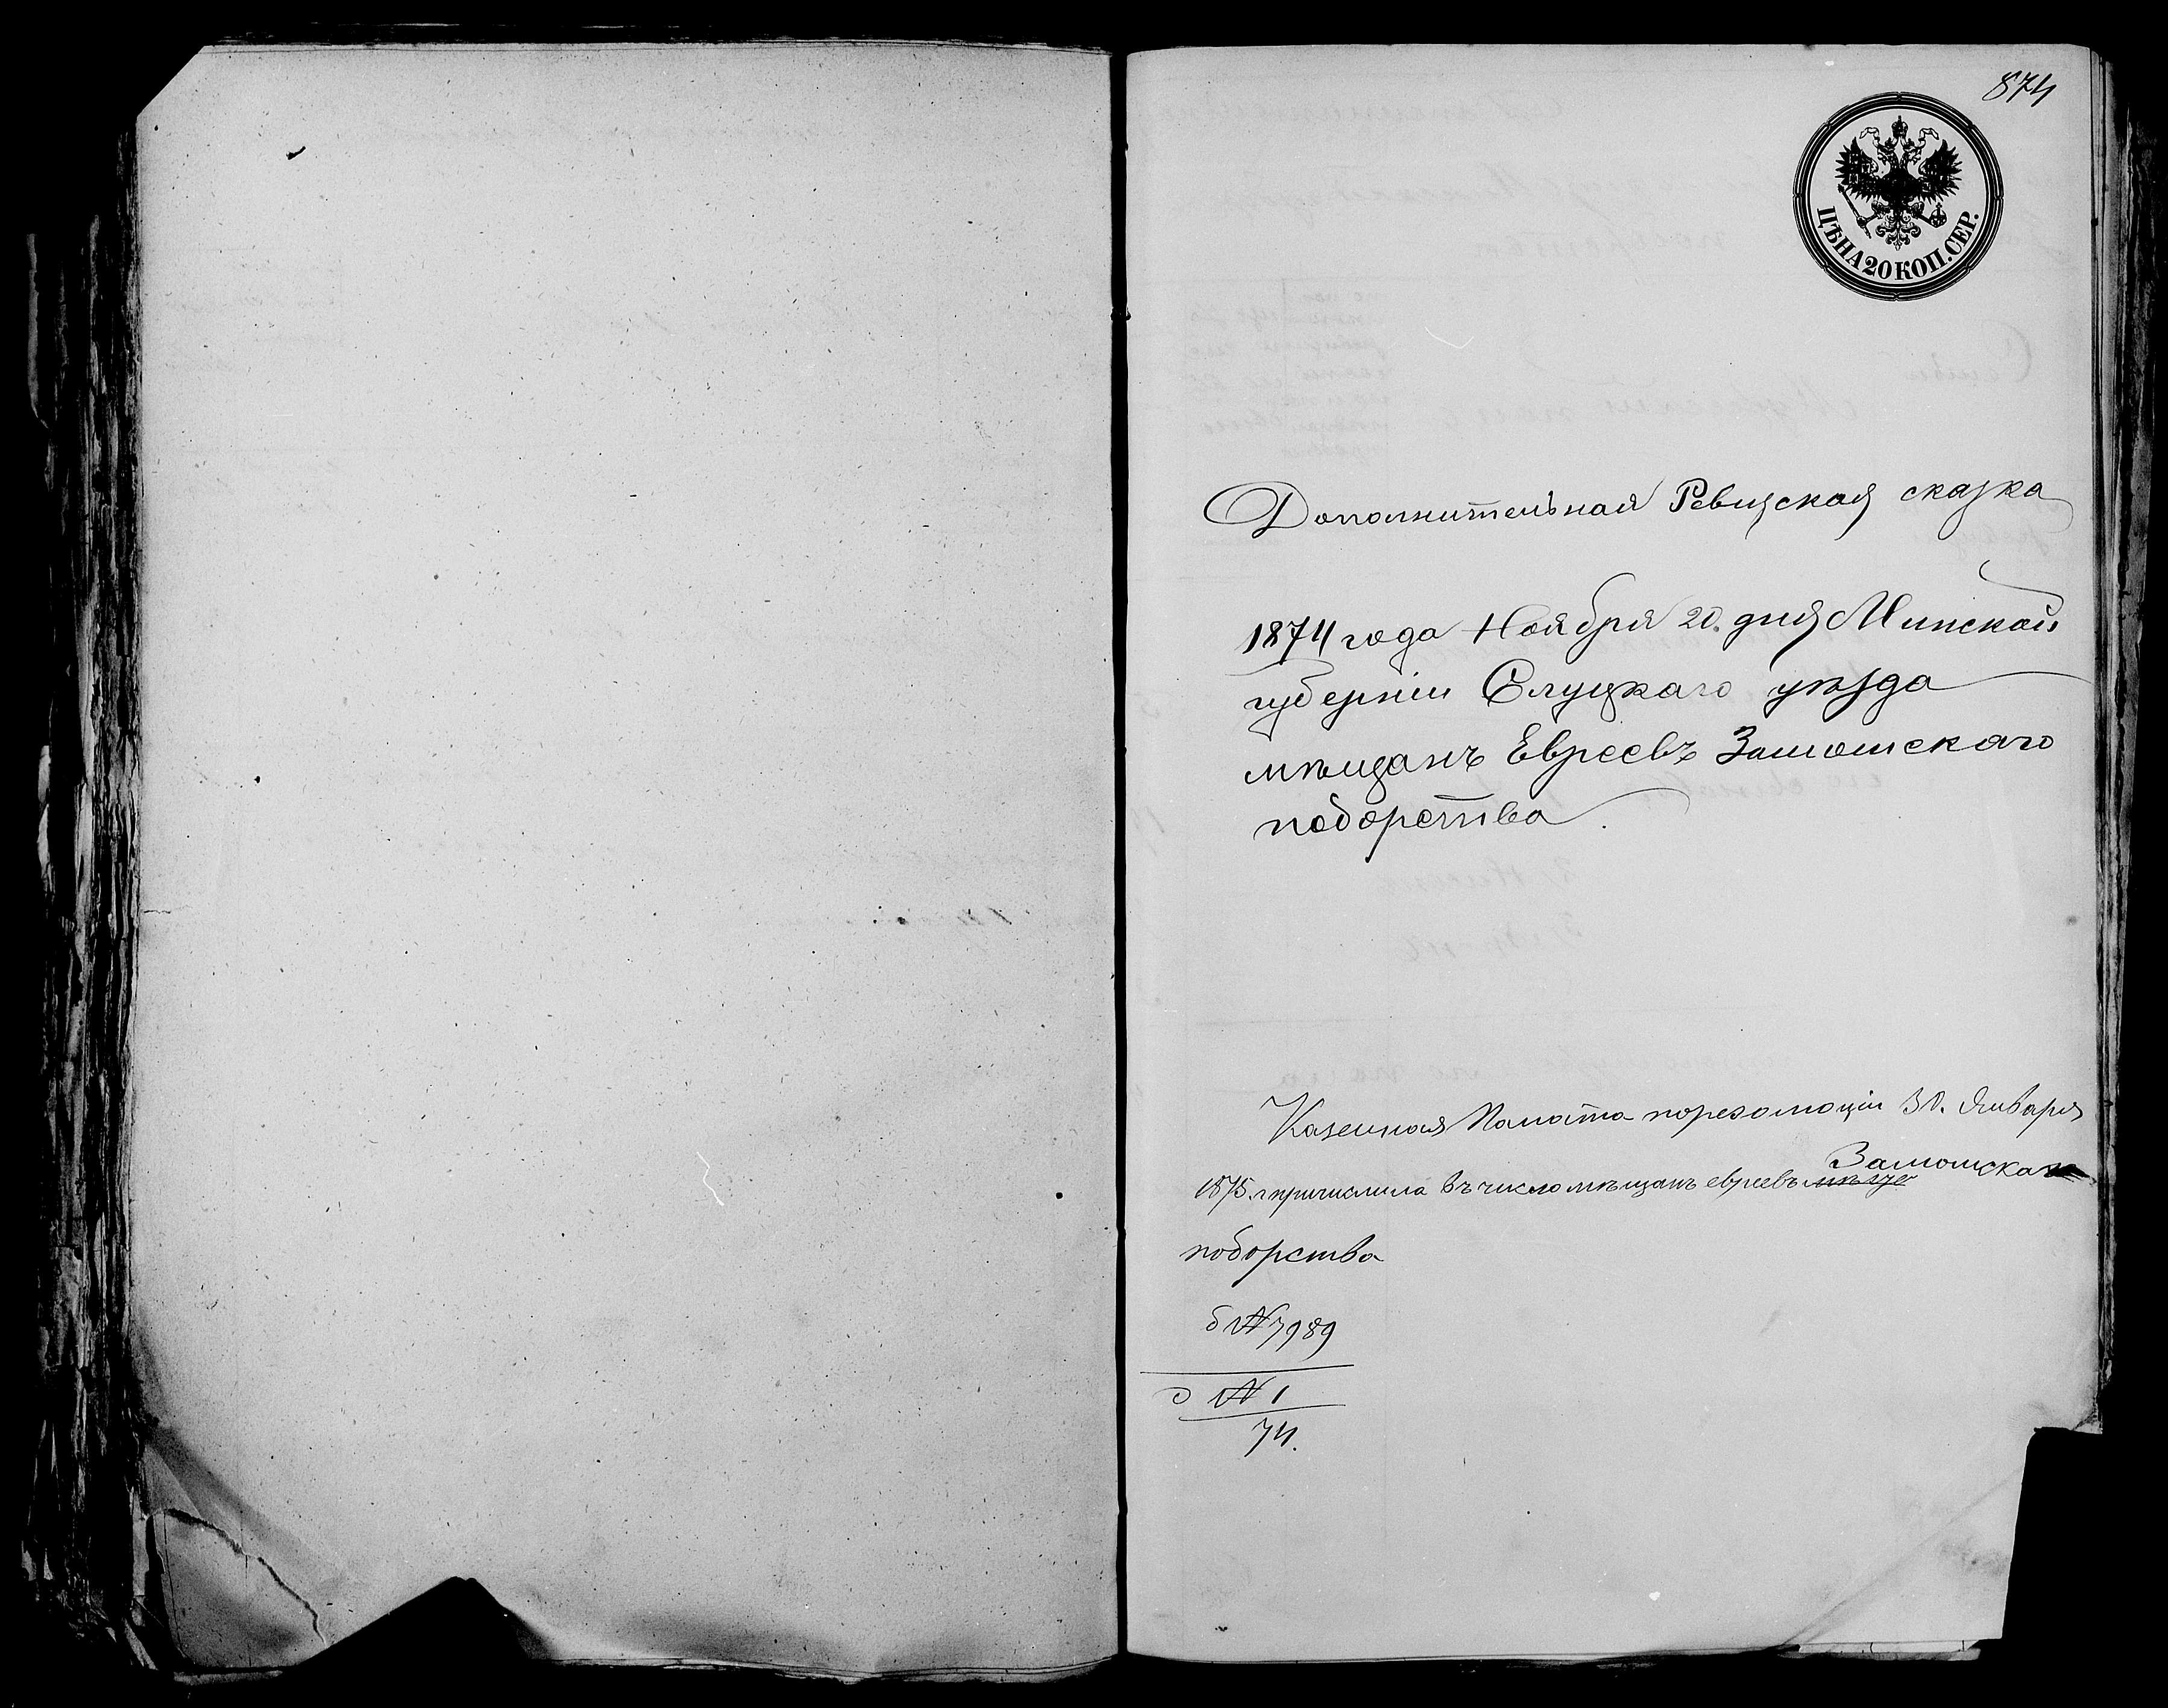 874
ЦѢНА 20 КОП. СЕР.
Дополнительная Ревизская сказка
1874 года Ноября 20. дня Минской
губерніи Слуцкаго уѣзда
мѣщанъ Евреевъ Замошскаго
поборства.
Казенная Палата по резолюціи 30. Января
1875. г причислила въ число мѣщанъ евреевъ Замошскаго
поборства
б №7989
д №1
74.